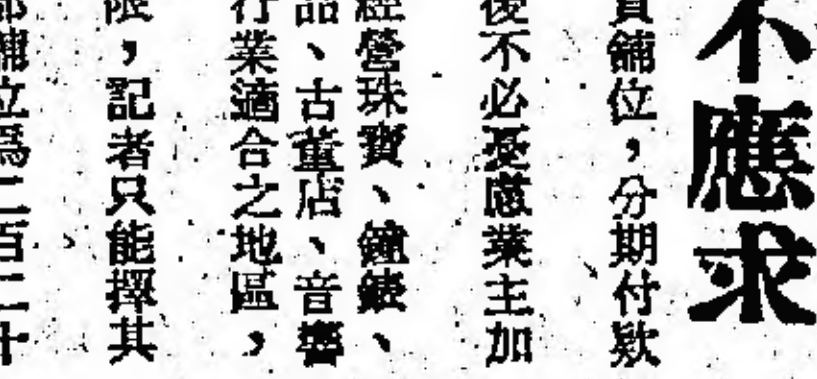 不應求
買舖位，分期付欵
後不必憂慮業主加
經營珠寶、鐘錶、
品、古董店、音響
行業適合之地區，
限，記者只能擇其
部舖位爲二百二十